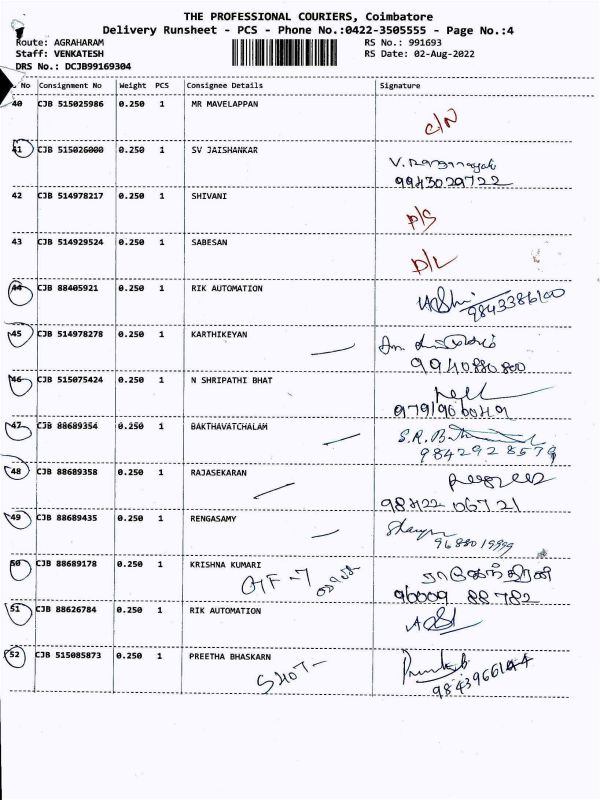 THE PROFESSIONAL COURIERS, Coimbatore
Delivery Runsheet - PCS - Phone No.:0422-3505555 - Page No.:4
Route: AGRAHARAM RS No.: 991693
Staff: VENKATESH RS Date: 02-Aug-2022
DRS No.: DCJB99169304
No Consignment No Weight PCS Consignee Details Signature
40 CJB 515025986 0.250 1 MR MAVELAPPAN
C/N
41 CJB 515026000 0.250 1 SV JAISHANKAR
9943029722
42 CJB 514978217 0.250 1 SHIVANI
P/S
43 CJB 514929524 0.250 1 SABESAN
D/L
44 CJB 88405921 0.250 1 RIK AUTOMATION
9843386100
45 CJB 514978278 0.250 1 KARTHIKEYAN
9940880800
46 CJB 515075424 0.250 1 N SHRIPATHI BHAT
47 CJB 88689354 0.250 1 BAKTHAVATCHALAM
9842928579
48 CJB 88689358 0.250 1 RAJASEKARAN
98422 06721
49 CJB 88689435 0.250 1 RENGASAMY
9688019999
50 CJB 88689178 0.250 1 KRISHNA KUMARI
96009 88782
51 CJB 88626784 0.250 1 RIK AUTOMATION
52 CJB 515085873 0.250 1 PREETHA BHASKARN
9843966144